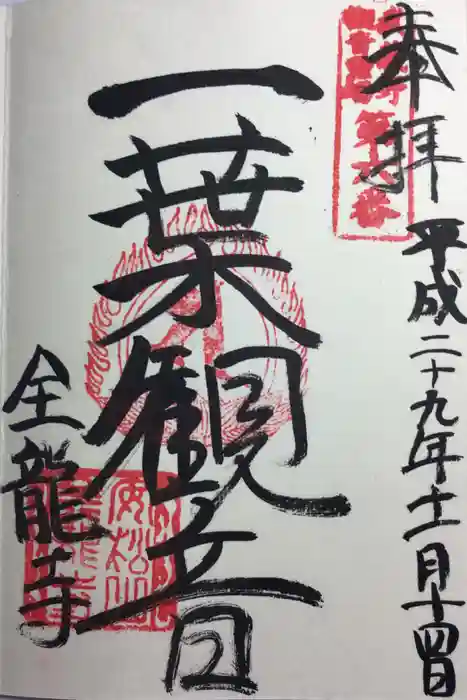 奉拝 平成二十九年十一月十四日
第六番
一葉観音
全龍寺